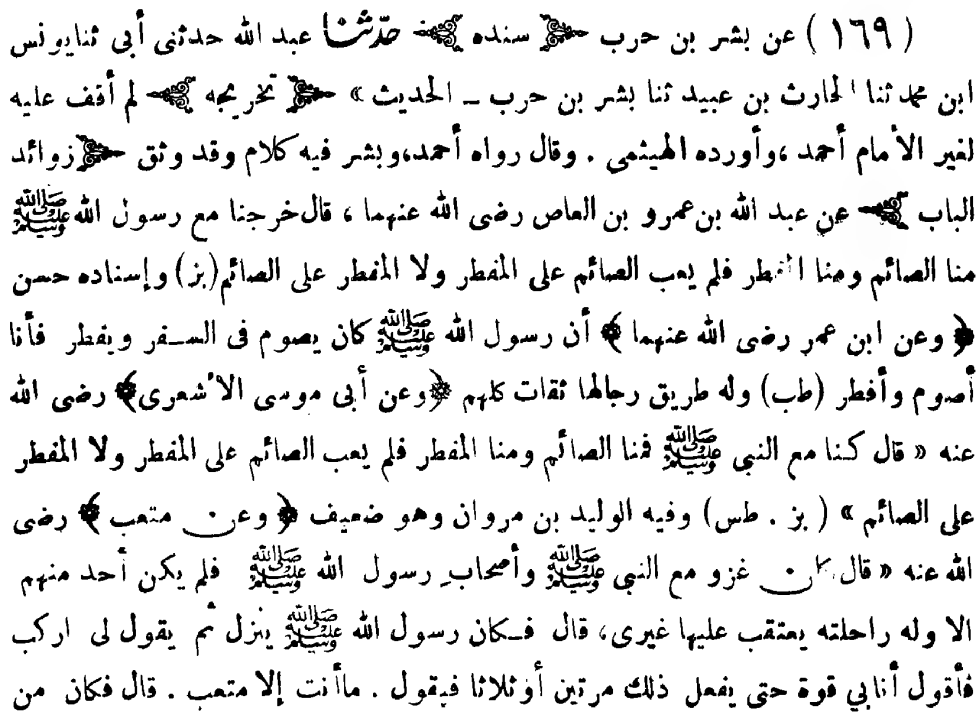 ( ١٦٩ ) عن بشر بن حرب ﴿ سنده ﴾ حدّثنا عبد الله حدثنى أبى ثنا يونس
ابن محمد ثنا الحارث بن عبيد ثنا بشر بن حرب ــ الحديث » ﴿ تخريجه ﴾ لم أقف عليه
لغير الأمام أحمد ،وأورده الهيثمى . وقال رواه أحمد،وبشر فيه كلام وقد وثق ﴿ زوائد
الباب ﴾ عن عبد الله بن عمرو بن العاص رضى الله عنهما ، قال خرجنا مع رسول الله ﷺ
منا الصائم ومنا المفطر فلم يعب الصائم على المفطر ولا المفطر على الصائم (بز) وإسناده حسن
﴿ وعن ابن عمر رضى الله عنهما ﴾ أن رسول الله ﷺ كان يصوم فى السـفر ويفطر فأنا
أصوم وأفطر (طب) وله طريق رجالها ثقات كلهم ﴿وعن أبى موسى الأشعرى﴾ رضى الله
عنه « قال كنا مع النبى ﷺ فمنا الصائم ومنا المفطر فلم يعب الصائم على المفطر ولا المفطر
على الصائم » ( بز . طس) وفيه الوليد بن مروان وهو ضعيف ﴿ وعن متعب ﴾ رضى
الله عنه « قال كان غزو مع النبى ﷺ وأصحاب رسول الله ﷺ فلم يكن أحد منهم
الا وله راحلته يعتقب عليها غيرى، قال فـكان رسول الله ﷺ ينزل ثم يقول لى اركب
فأقول أنا بي قوة حتى يفعل ذلك مرتين أو ثلاثا فيقول . ما أنت إلا متعب . قال فكان من